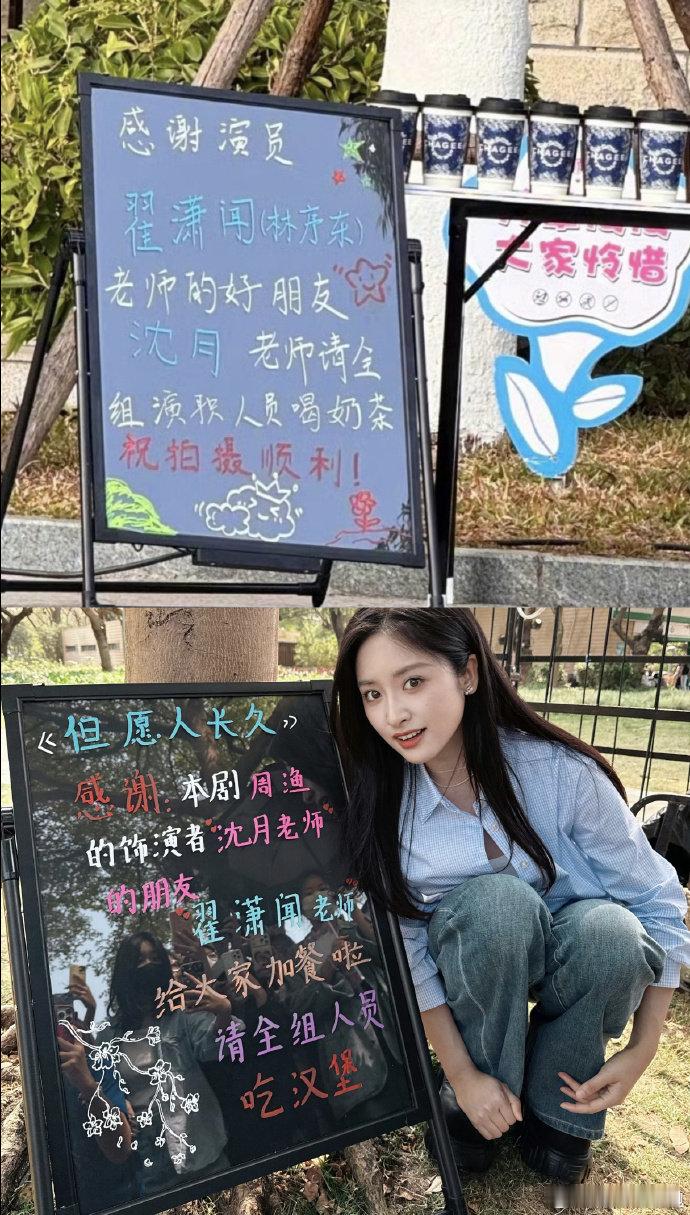 感谢演员
翟潇闻(林序东)
老师的好朋友
沈月 老师请全
组演职人员喝奶茶
祝拍摄顺利!
CHAGEE
大家怜惜
《但愿人长久》
感谢:本剧周渔
的饰演者"沈月老师"
的朋友
"翟潇闻老师"
给大家加餐啦
请全组人员
吃汉堡